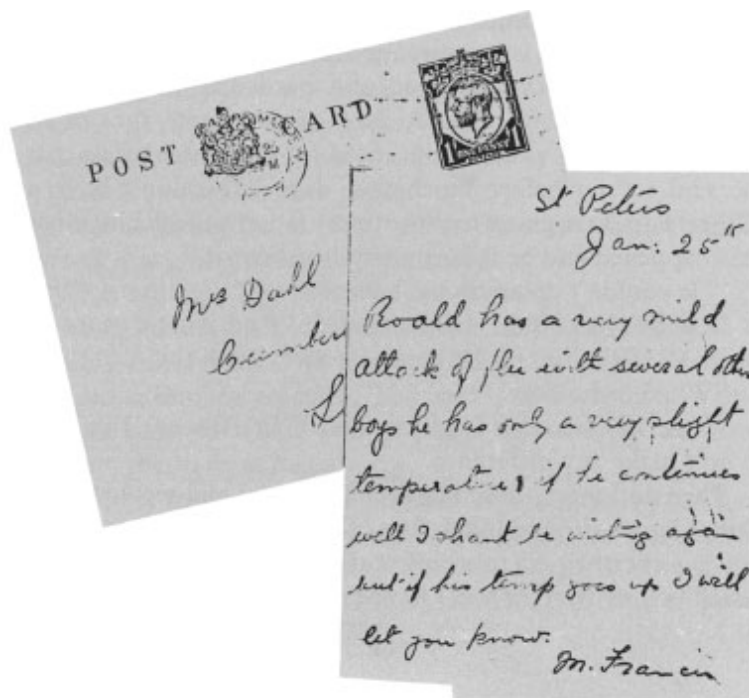 POST CARD
Mrs Dahl
Cumber
St Peters
Jan: 25th
Roald has a very mild
attack of flu with several other
boys he has only a very slight
temperature, if he continues
well I shant be writing again
but if his temp goes up I will
let you know.
M. Francis